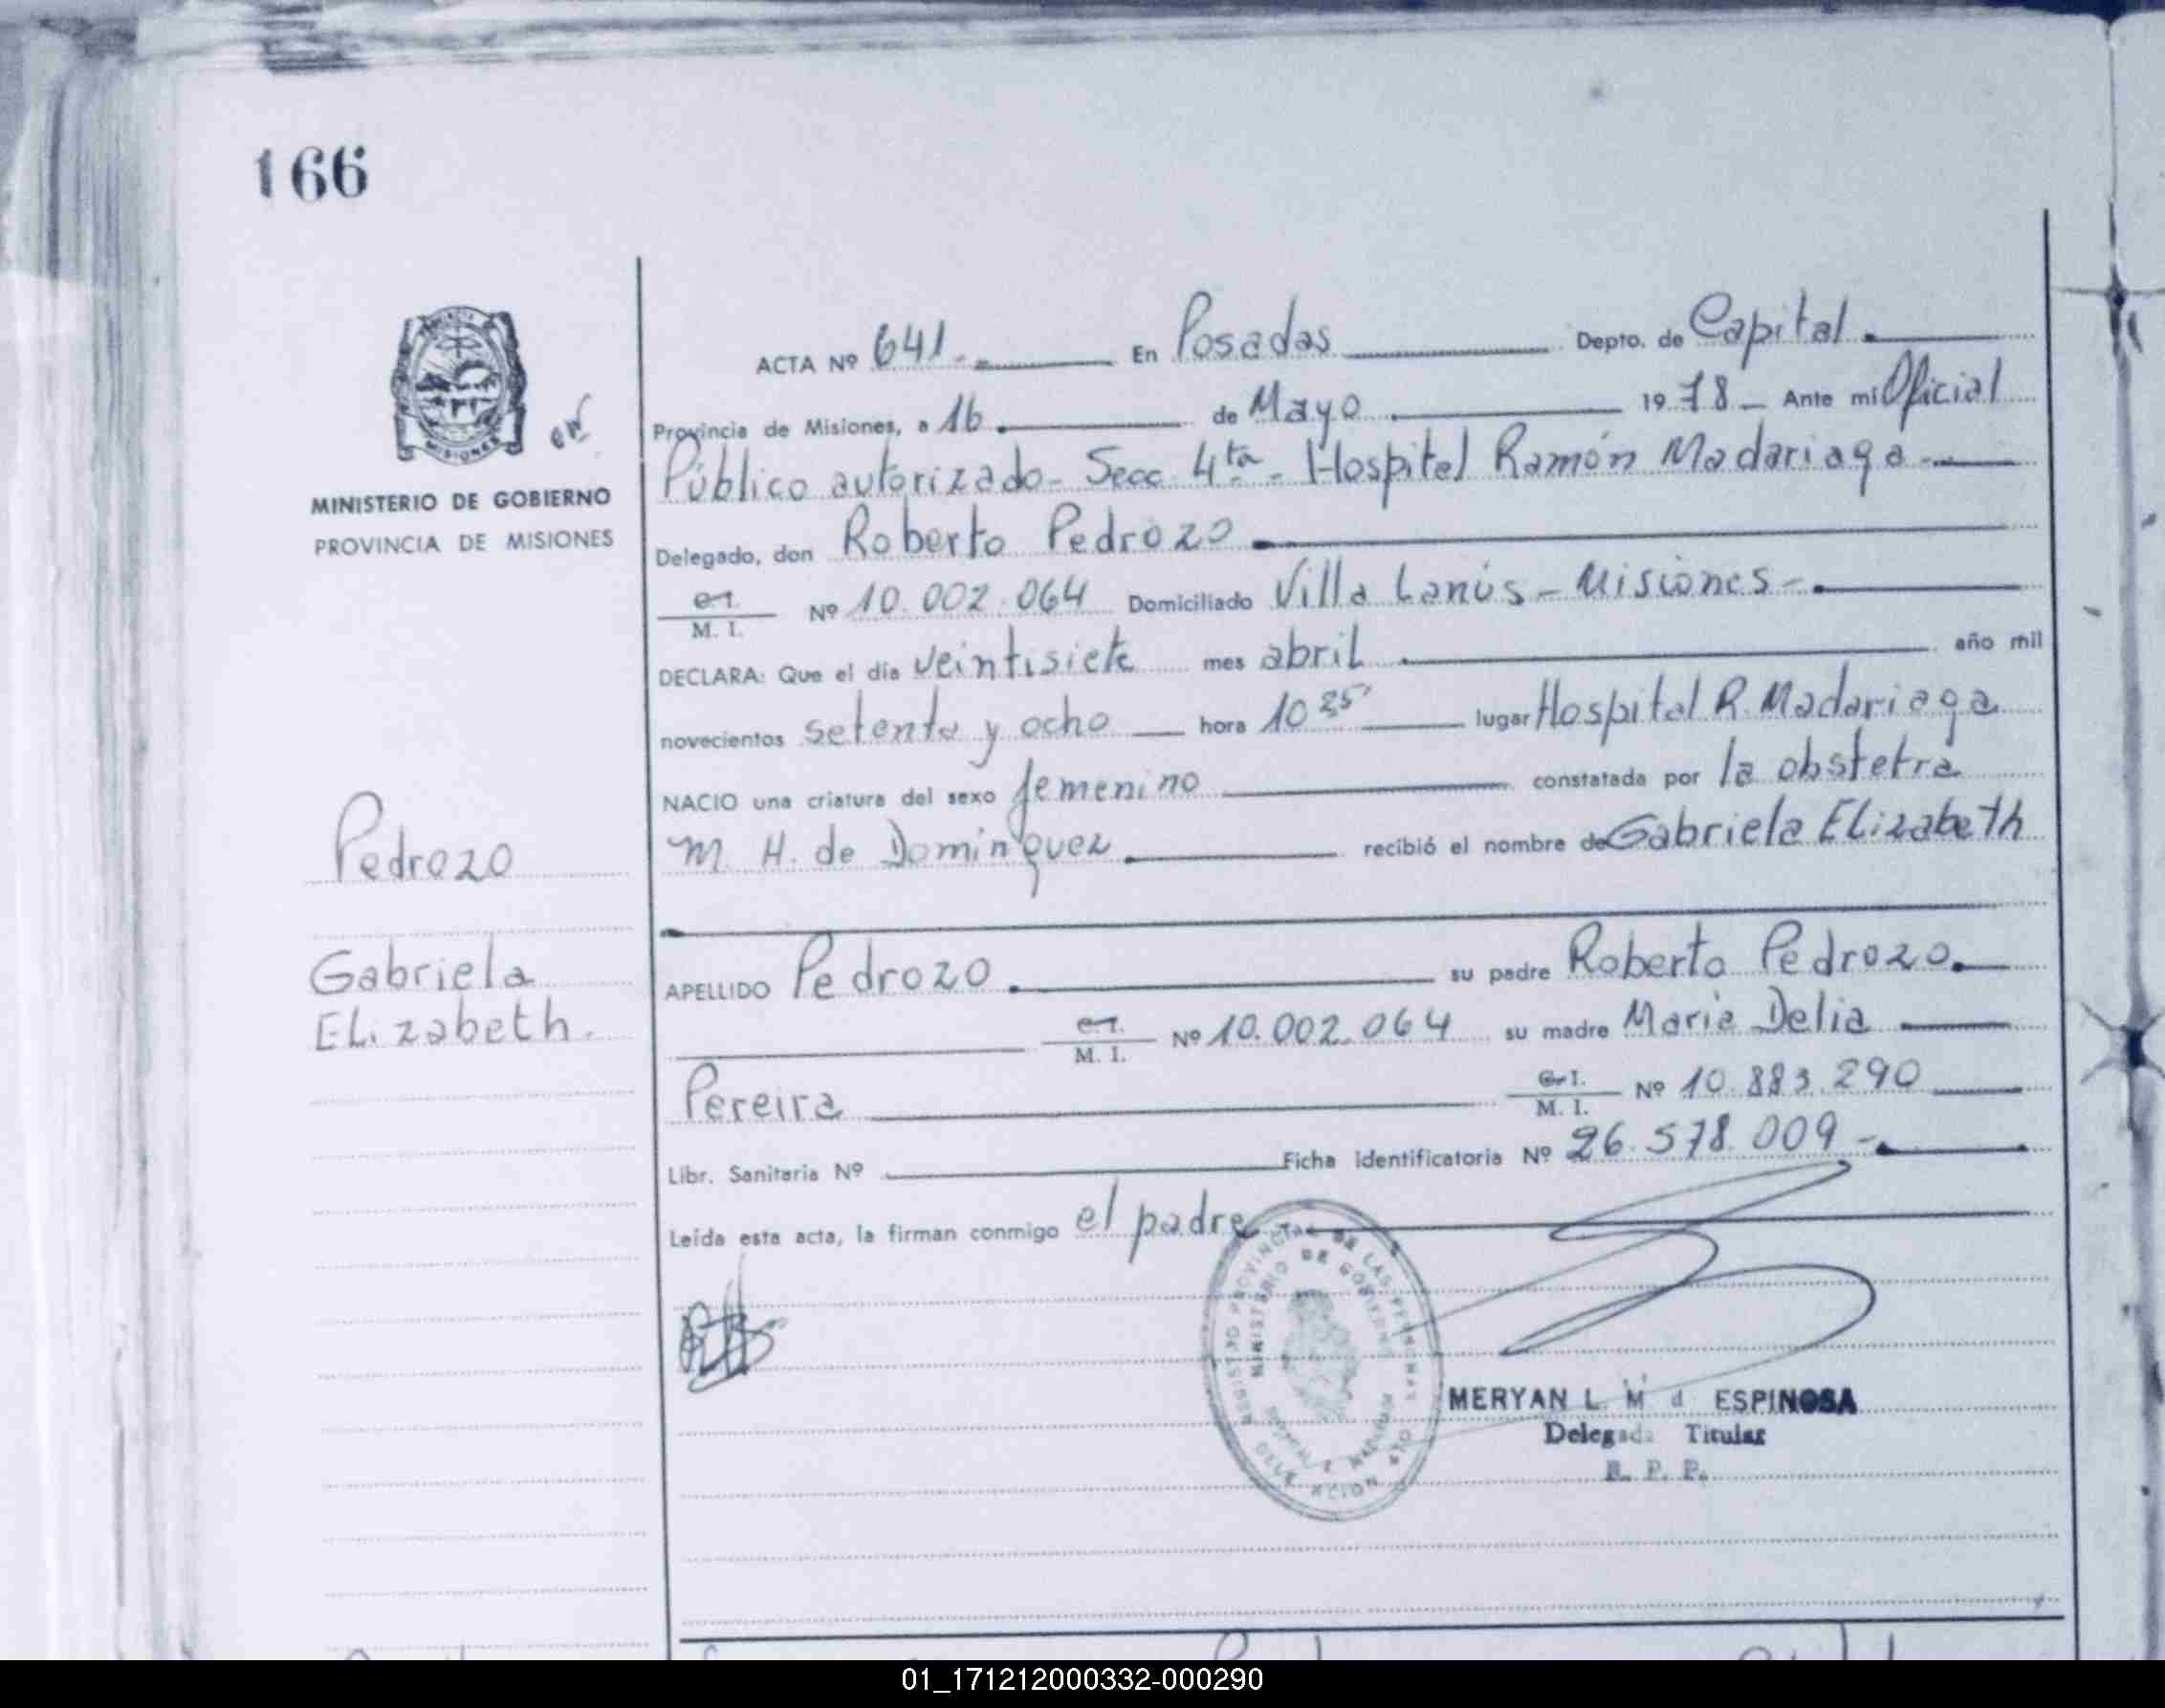 166
MISIONES
MINISTERIO DE GOBIERNO
PROVINCIA DE MISIONES
Pedrozo
Gabriela
Elizabeth.
ACTA Nº 641 - En Posadas Depto. de Capital
Provincia de Misiones, a 16 de Mayo 1978 - Ante mi Oficial
Público autorizado - Secc 4ta - Hospital Ramón Madariaga -
Delegado, don Roberto Pedrozo
M. I. Nº 10.002.064 Domiciliado Villa Lanús - Misiones -
DECLARA: Que el día veintisiete mes abril año mil
novecientos setenta y ocho hora 10 35' lugar Hospital R. Madariaga
NACIO una criatura del sexo femenino constatada por la obstetra
M. H. de Domínguez recibió el nombre de Gabriela Elizabeth
APELLIDO Pedrozo su padre Roberto Pedrozo.
M. I. Nº 10.002.064 su madre María Delia
Pereira M. I. Nº 10.883.290
Libr. Sanitaria Nº Ficha identificatoria Nº 26.578.009 -
Leída esta acta, la firman conmigo el padre
REGISTRO PROVINCIAL DE LAS PERSONAS
MINISTERIO DE GOBIERNO
MERYAN L. M d ESPINOSA
Delegada Titular
R. P. P.
01_171212000332-000290